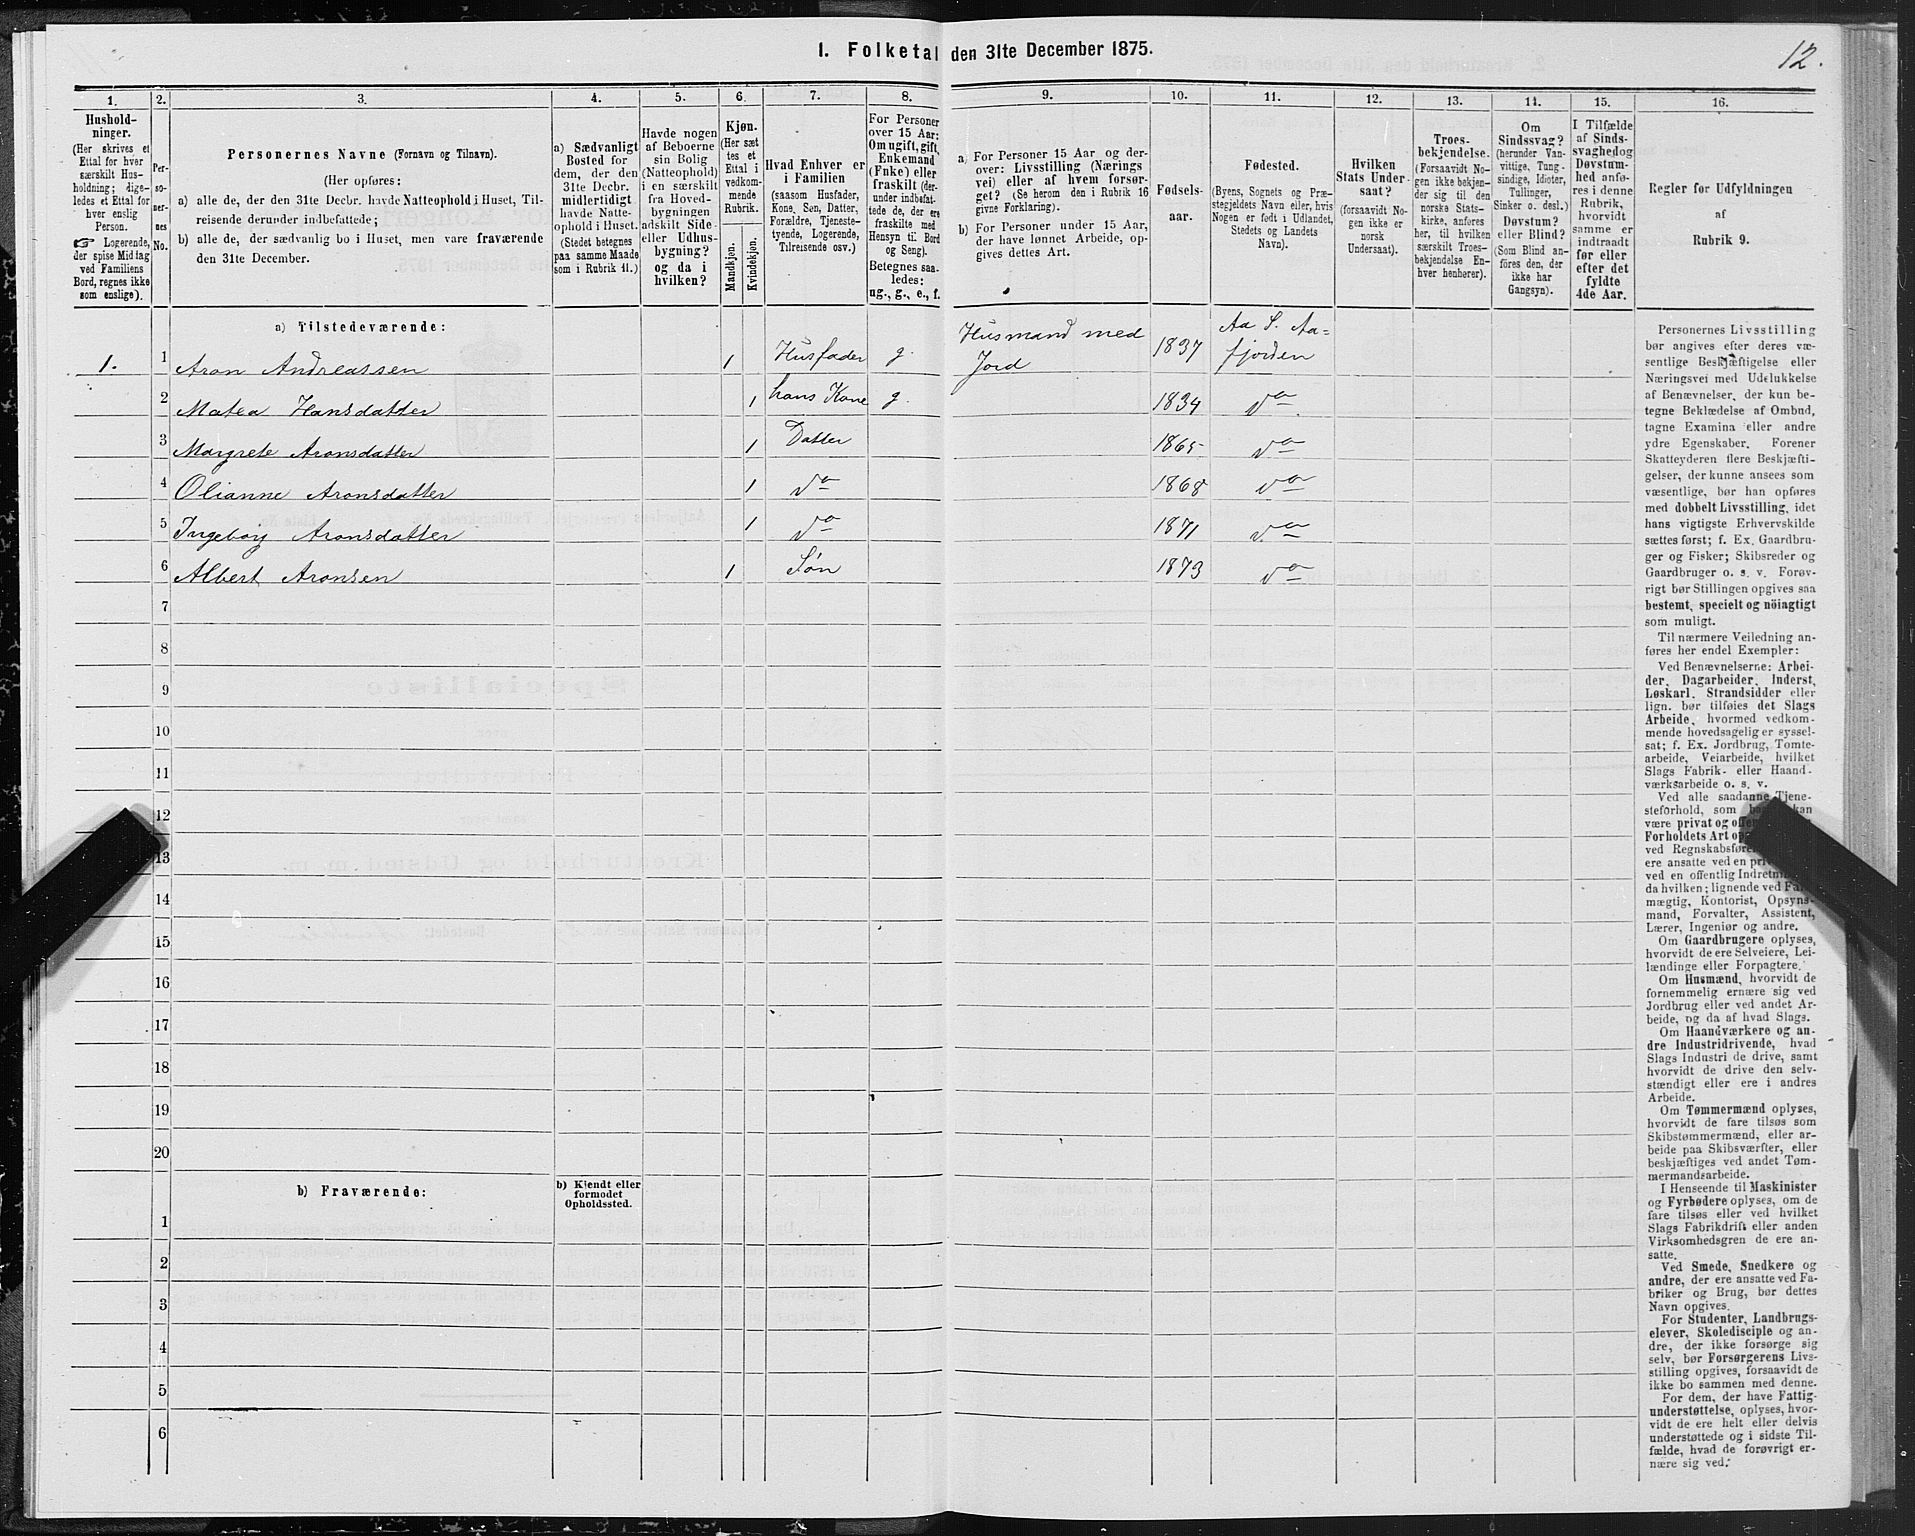 I. Folketal den 31te December 1875.
12.
1.
2.
3.
4.
5.
6.
7.
8.
9.
10.
11.
12.
13.
14.
15.
16.
Hushold-
ninger.
(Her skrives et
Ettal for hver
særskilt Hus-
holdning; dige-
ledes et Ettal for
hver enslig
Person.
☞ Logerende,
der spise Middag
ved Familiens
Bord, regnes ikke
som enslige).
Per-
so-
ner-
nes
No.
Personernes Navne (Fornavn og Tilnavn).
(Her opføres:
a) alle de, der den 31te Decbr. havde Natteophold i Huset, Til-
reisende derunder indbefattede;
b) alle de, der sædvanlig bo i Huset, men vare fraværende
den 31te December.
a) Sædvanligt
Bosted for
dem, der den
31te Decbr.
midlertidigt
havde Natte-
ophold i Huset.
(Stedet betegnes
paa samme Maade
som i Rubrik 11.)
Havde nogen
af Beboerne
sin Bolig
(Natteophold)
i en særskilt
fra Hoved-
bygningen
adskilt Side-
eller Udhus-
bygning?
og da i
hvilken?
Kjøn.
(Her sæt
tes et
Ettal i
vedkom-
mende
Rubrik.
Mandkjøn.
Kvindekjøn.
Hvad Enhver er
i Familien
(saasom Husfader,
Kone, Søn, Datter,
Forældre, Tjeneste-
tyende, Logerende,
Tilreisende osv.)
For Personer
over 15 Aar:
Om ugift, gift,
Enkemand
(Enke) eller
fraskilt (der-
under indbefat-
tede de, der ere
fraskilte med
Hensyn til Bord
og Seng).
Betegnes saa-
ledes:
ug., g., e., f.
a) For Personer 15 Aar og der-
over: Livsstilling (Nærings
vei) eller af hvem forsør-
get? (Se herom den i Rubrik 16
givne Forklaring).
b) For Personer under 15 Aar,
der have lønnet Arbeide, op-
gives dettes Art.
Fødsels-
aar.
Fødested.
(Byens, Sognets og Præ-
stegjeldets Navn eller, hvis
Nogen er født i Udlandet,
Stedets og Landets
Navn).
Hvilken
Stats Under-
saat?
(forsaavidt No-
gen ikke er
norsk
Undersaat).
Troes-
bekjendelse.
(Forsaavidt No-
gen ikke bekjen-
der sig til den
norske Stats-
kirke, anføres
her, til hvilken
særskilt Troes-
bekjendelse En-
hver henhører).
Om
Sindssvag?
(herunder Van-
vittige, Tung-
sindige, Idioter,
Tullinger,
Sinker o. desl.)
Døvstum?
eller Blind?
(Som Blind an-
føres den, der
ikke har
Gangsyn).
I Tilfælde
af Sinds-
svaghed og
Døvstum-
hed anfø-
res i denne
Rubrik,
hvorvidt
samme er
indtraadt
før eller
efter det
fyldte
4de Aar.
Regler før Udfyldningen
af
Rubrik 9.
a) Tilstedeværende:
1. 1 Aron Andreassen 1 Husfader g. Husmand med Jord 1837 Aa S. Aa=
fjorden
2 Matea Hansdatter 1 hans Kone g. 1834 do
3 Margrete Aronsdatter 1 Datter 1865 do
4 Olianne Aronsdatter 1 do 1868 do
5 Ingeborg Aronsdatter 1 do 1871 do
6 Albert Aronsen 1 Søn 1873 do
7
8
9
10
11
12
13
14
15
16
17
18
19
20
b) Fraværende:
b) Kjendt eller
formodet
Opholdssted.
1
2
3
4
5
6
Personernes Livsstilling
bør angives efter deres væ-
sentlige Beskjæftigelse eller
Næringsvei med Udelukkelse
af Benævnelser, der kun be-
tegne Beklædelse af Ombud,
tagne Examina eller andre
ydre Egenskaber. Forener
Skatteyderen flere Beskjæfti-
gelser, der kunne ansees som
væsentlige, bør han opføres
med dobbelt Livsstilling, idet
hans vigtigste Erhvervskilde
sættes først; f. Ex. Gaardbru-
ger og Fisker; Skibsreder og
Gaardbruger o. s. v. Forøv-
rigt bør Stillingen opgives saa
bestemt, specielt og nöiagtigt
som muligt.
Til nærmere Veiledning an-
føres her endel Exempler:
Ved Benævnelserne: Arbei-
der, Dagarbeider, Inderst,
Løskarl, Strandsidder eller
lign. bør tilføies det Slags
Arbeide, hvormed vedkom-
mende hovedsagelig er syssel-
sat; f. Ex. Jordbrug, Tomte-
arbeide, Veiarbeide, hvilket
Slags Fabrik- eller Haand-
værksarbeide o. s. v.
Ved alle saadanne Tjene-
steforhold, som kan
være privat og
Forholdets Art
ved Regnskabsføre
ere ansatte ved en
ved en offentlig Indretn
da hvilken; lignende ved
mægtig, Kontorist, Opsyns-
mand, Forvalter, Assistent,
Lærer, Ingeniør og andre.
Om Gaardbrugere oplyses,
hvorvidt de ere Selveiere, Lei-
lændinge eller Forpagtere.
Om Husmænd, hvorvidt de
fornemmelig ernære sig ved
Jordbrug eller ved andet Ar-
beide, og da af hvad Slags.
Om Haandværkere og an-
dre Industridrivende, hvad
Slags Industri de drive, samt
hvorvidt de drive den selv-
stændigt eller ere i andres
Arbeide.
Om Tømmermænd oplyses,
hvorvidt de fare tilsøs som
Skibstømmermænd, eller ar-
beide paa Skibsværfter, eller
beskjæftiges ved andet Tøm-
mermandsarbeide.
I Henseende til Maskinister
og Fyrbødere oplyses, om de
fare tilsøs eller ved hvilket
Slags Fabrikdrift eller anden
Virksomhedsgren de ere an-
satte.
Ved Smede, Snedkere og
andre, der ere ansatte ved Fa-
briker og Brug, bør dettes
Navn opgives.
For Studenter, Landbrugs-
elever, Skoledisciple og an-
dre, der ikke forsørge sig
selv, bør Forsørgerens Livs-
stilling opgives, forsaavidt de
ikke bo sammen med denne.
For dem, der have Fattig-
understøttelse, oplyses, hvor-
vidt de ere helt eller delvis
understøttede og i sidste Til-
fælde, hvad de forøvrigt er-
nære sig ved.